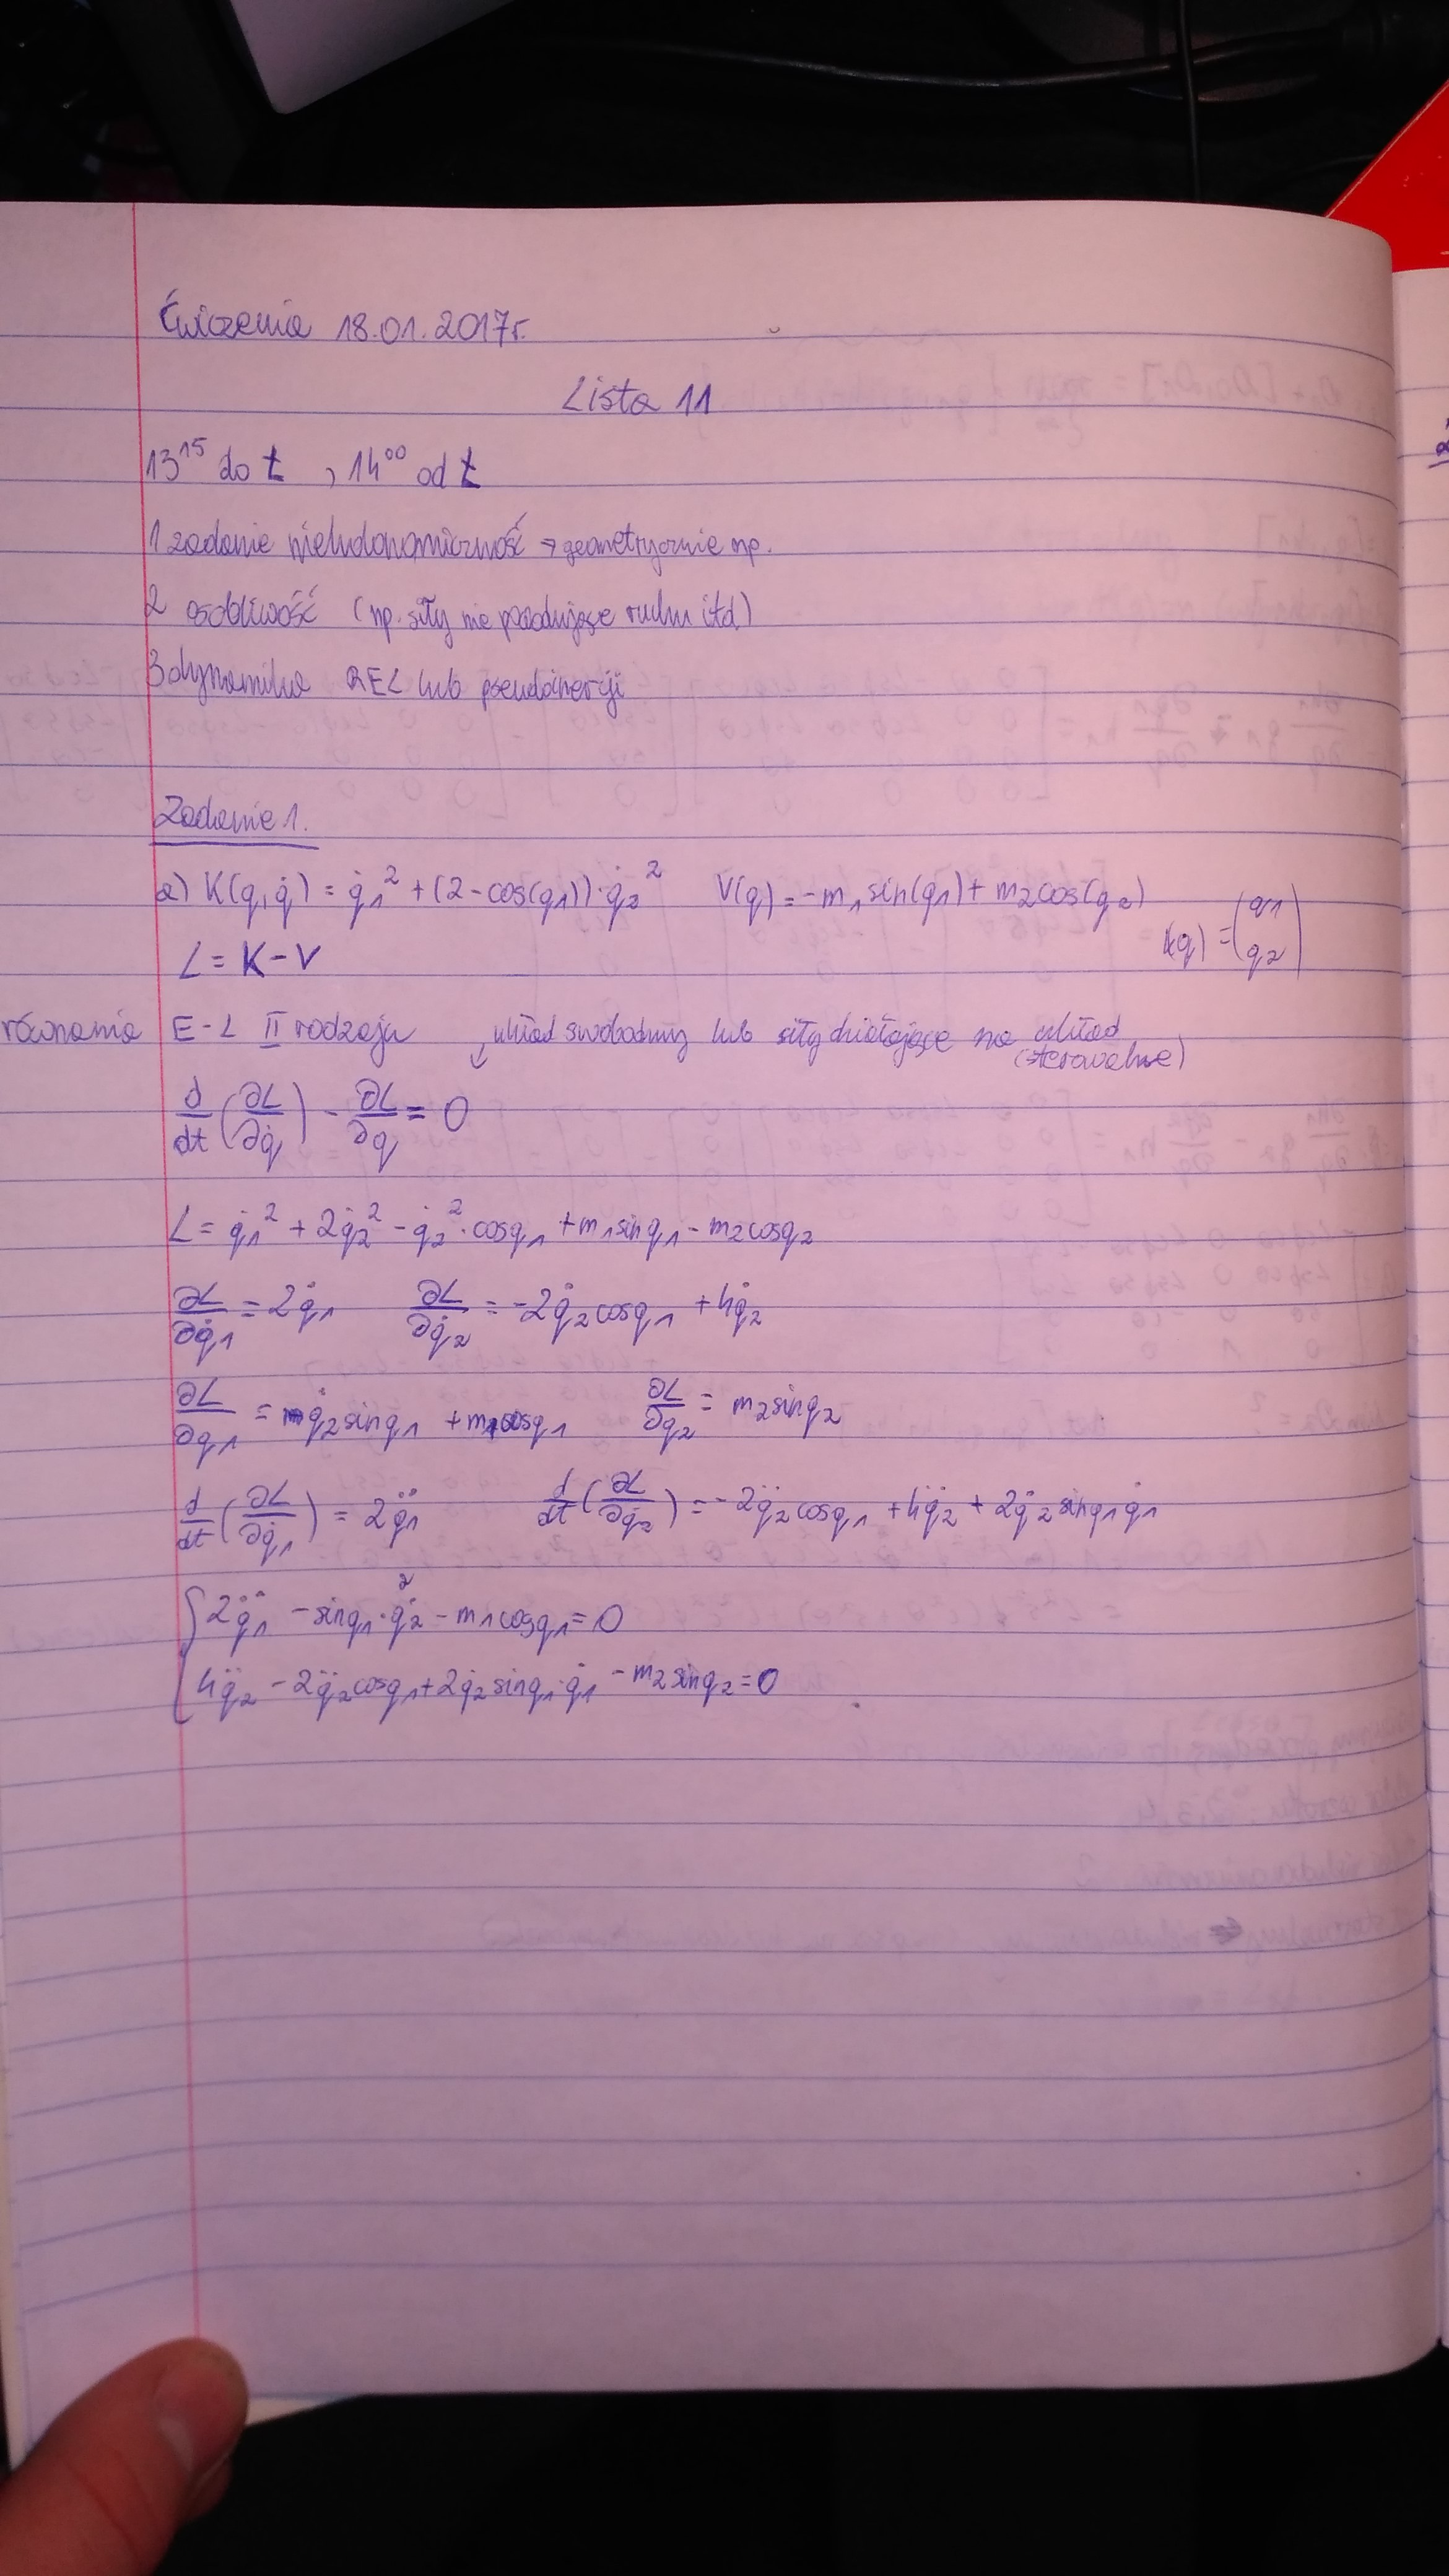 Ćwiczenia 18.01.2017r.
Lista 11
13¹⁵ do Ł , 14⁰⁰ od Ł
1 zadanie nieholonomiczność → geometrycznie np.
2 osobliwość (np. siły nie powodujące ruchu itd)
3 dynamika REL lub pseudoinercji
Zadanie 1.
a) K(q,q̇) = q̇₁² + (2-cos(q₁))·q̇₂² V(q) = -m₁sin(q₁) + m₂cos(q₂)
L = K-V k(q) = (q₁ q₂)
równania E-L II rodzaju układ swobodny lub siły działające na układ
(sterowalne)
d/dt (∂L/∂q̇) - ∂L/∂q = 0
L = q̇₁² + 2q̇₂² - q̇₂²·cosq₁ + m₁sinq₁ - m₂cosq₂
∂L/∂q̇₁ = 2q̇₁ ∂L/∂q̇₂ = -2q̇₂cosq₁ + 4q̇₂
∂L/∂q₁ = q̇₂sinq₁ + m₁cosq₁ ∂L/∂q₂ = m₂sinq₂
d/dt (∂L/∂q̇₁) = 2q̈₁ d/dt (∂L/∂q̇₂) = -2q̈₂cosq₁ + 4q̈₂ + 2q̇₂sinq₁q̇₁
{ 2q̈₁ - sinq₁·q̇₂² - m₁cosq₁ = 0
4q̈₂ - 2q̈₂cosq₁ + 2q̇₂sinq₁·q̇₁ - m₂sinq₂ = 0